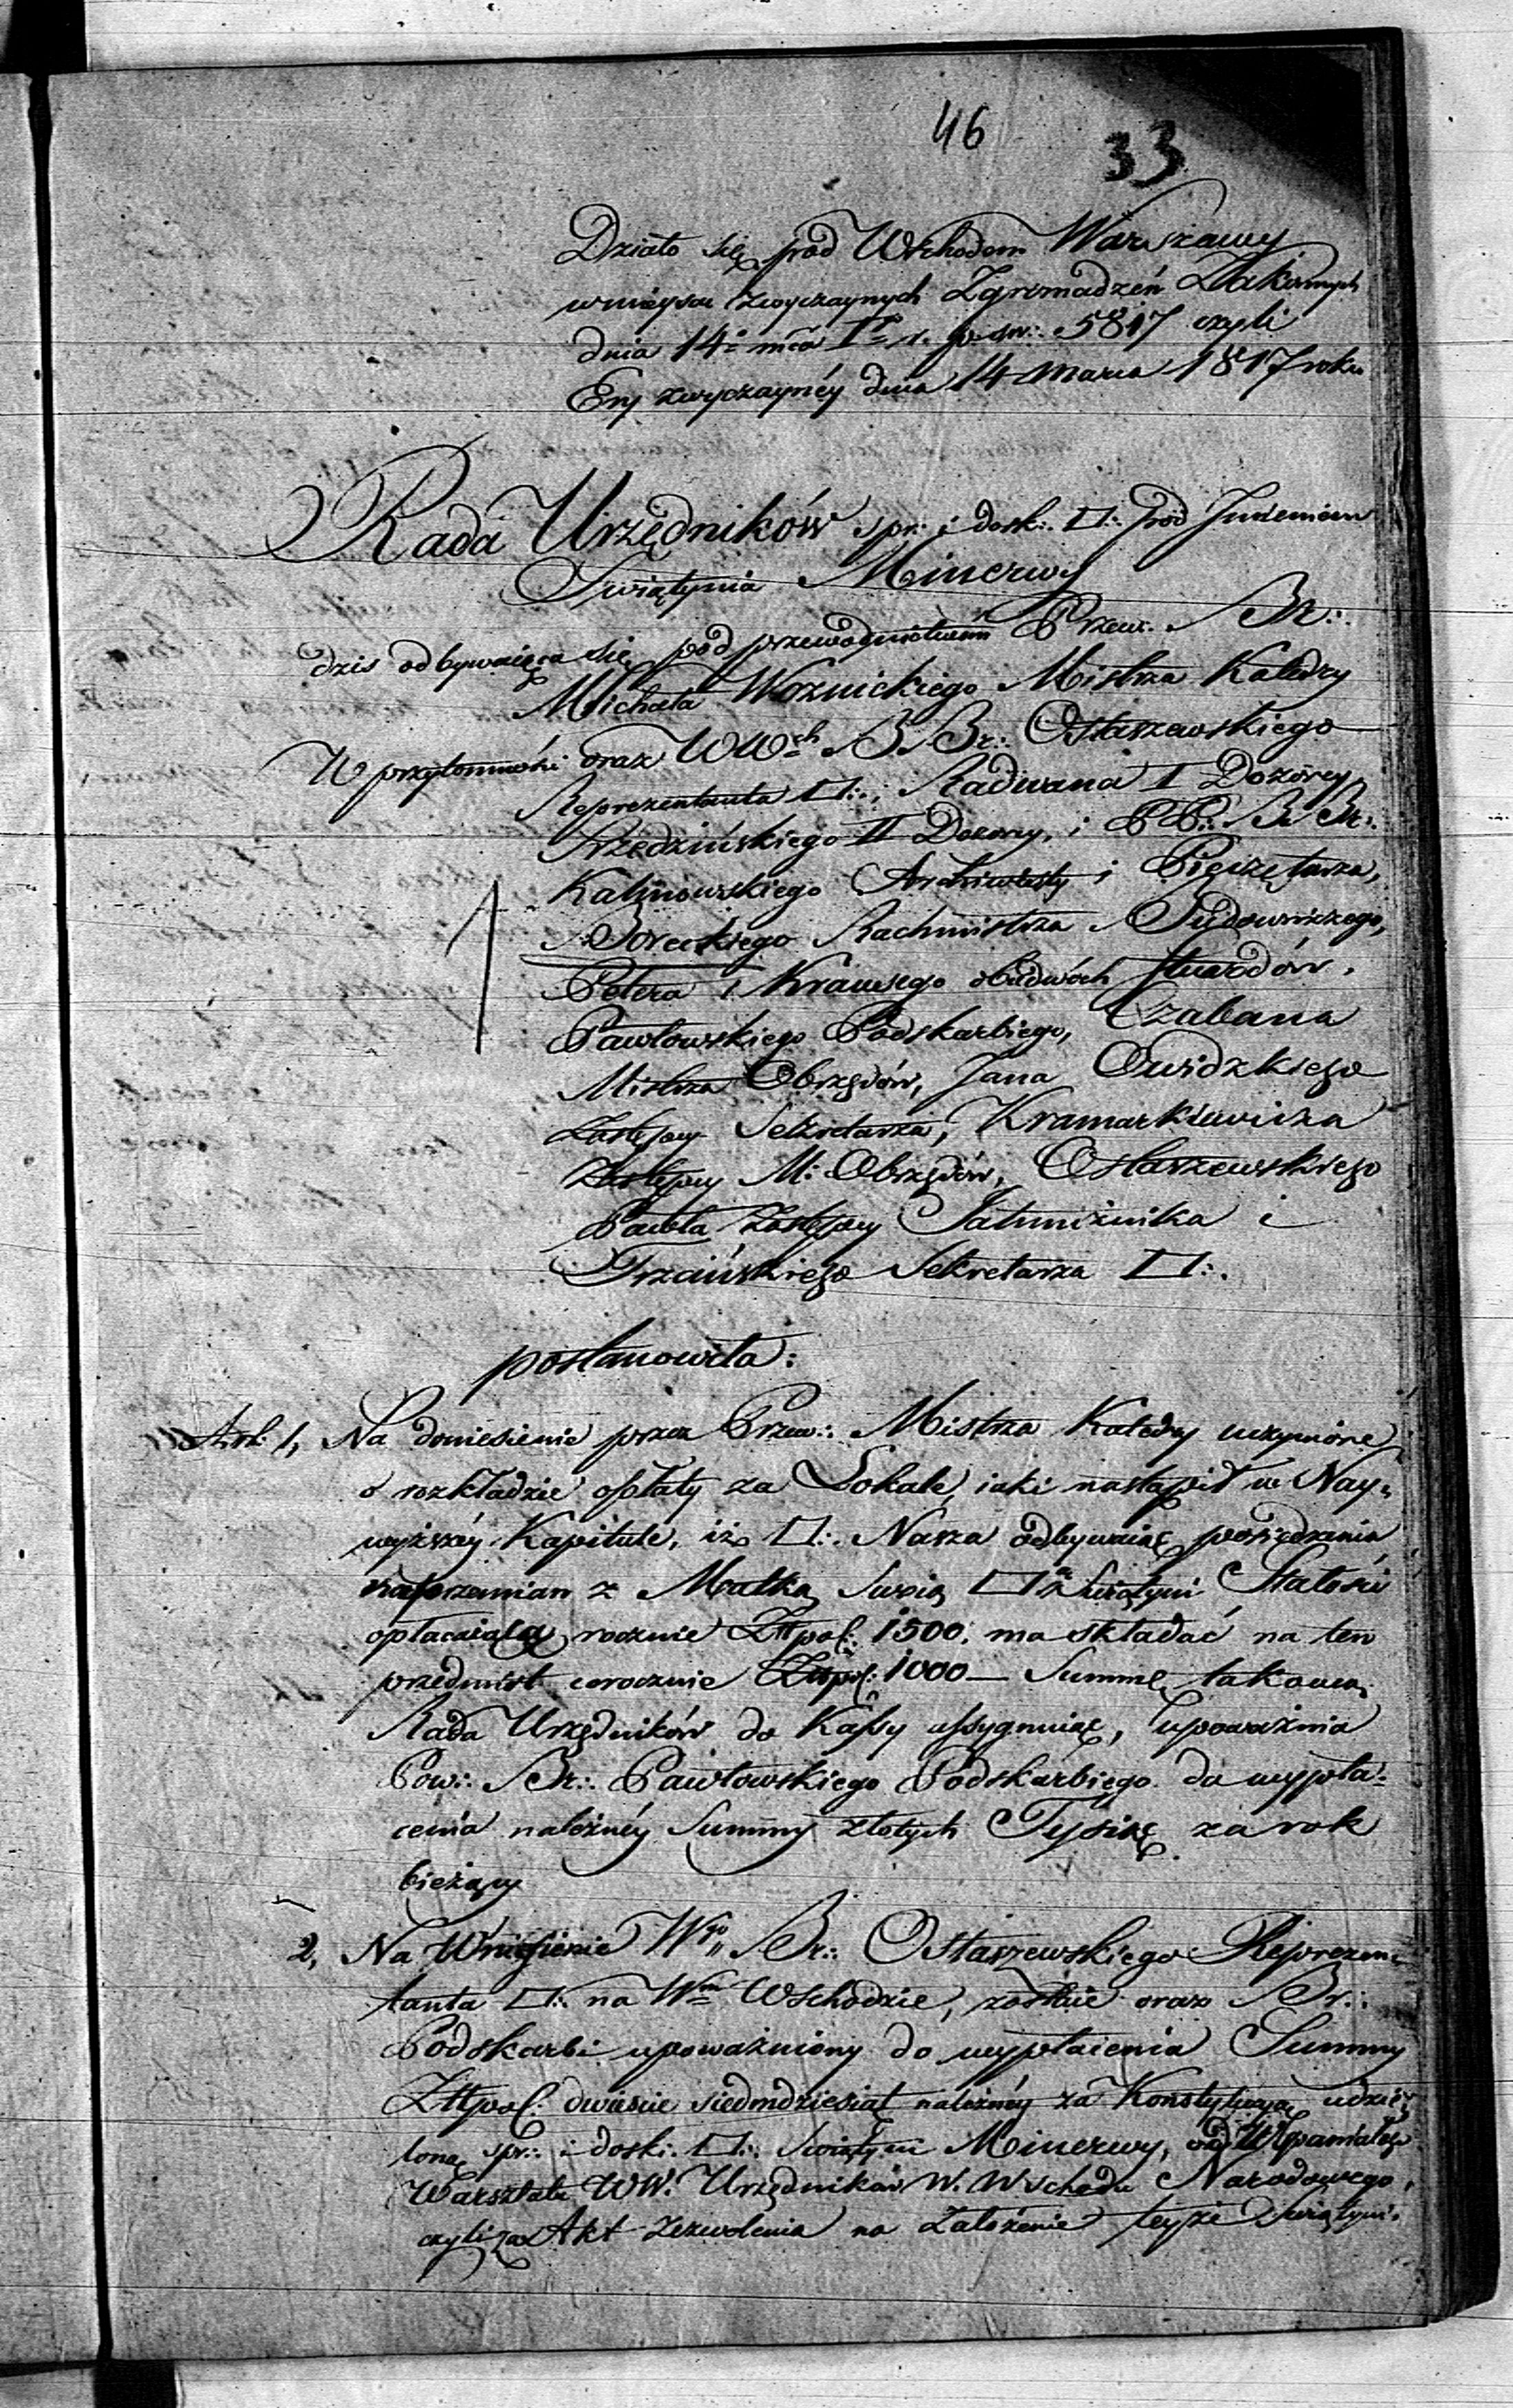 46
33
Działo się pod Wschodem Warszawy
w mieyscu zwyczaynych Zgromadzeń Zakonnych
dnia 14º mca Iº r. p. sw:. 5817 czyli
Ery zwyczaynéy dnia 14 Marca 1817 roku
Rada Urzędników spr: i dosk:. □:. pod Imieniem
Swiątynia Minerwy
dzis odbywaiąca się pod przewodnictwem Przew:. Br:.
Michała Woznickiego Mistrza Katedry
W przytomności oraz WWch BBr:. Ostaszewskiego
Reprezentanta □:., Radwana I Dozorcy,
Rzedzińskiego II Dozorcy, i PP:. BBr:.
Kalinowskiego Archiwisty i Pieczętarza,
Boreckiego Rachmistrza Budowniczego,
Petera i Krausego obudwóch Stuardów,
Pawłowskiego Podskarbiego, Czabana
Mistrza Obrzędów, Jana Owidzkiego
Zastępcy Sekretarza, Kramarkiewicza
Zastępcy M: Obrzędów, Ostaszewskiego
Pawła Zastępcy Jałmużnika i
Trzcińskiego Sekretarza □:.
postanowiła:
Art: 1, Na doniesienie przez Przew:. Mistrza Katedry uczynione
o rozkładzie opłaty za Lokale, iaki nastąpił w Nay-
wyższéy Kapitule, iż □:. Nasza odbywaiąc posiedzenia
naprzemian z Matką Swoią □ą Swiątyni Stałości
opłacaiącą rocznie Złtpol: 1500. ma składać na ten
przedmiot corocznie Złtpol: 1000 — Summę takową
Rada Urzędników do Kassy assygnuiąc, upoważnia
Pow:. Br:. Pawłowskiego Podskarbiego do wypła-
cenia należnéy Summy złotych Tysiąc za rok
bieżący
2, Na Wniesienie Wgo Br:. Ostaszewskiego Reprezen-
tanta □:. na Wm Wschodzie, zostaie oraz Br:.
Podskarbi upoważniony do wypłacenia Summy
Złtpol: dwieście siedmdziesiąt należnéy za Konstytucyą udzie-
loną spr:. i dosk:. □:. Swiątyni Minerwy, od Wspaniałego
Warsztatu WW. Urzędników W. Wschodu Narodowego,
czyli za Akt Zezwolenia na Założenie teyże Swiątyni.